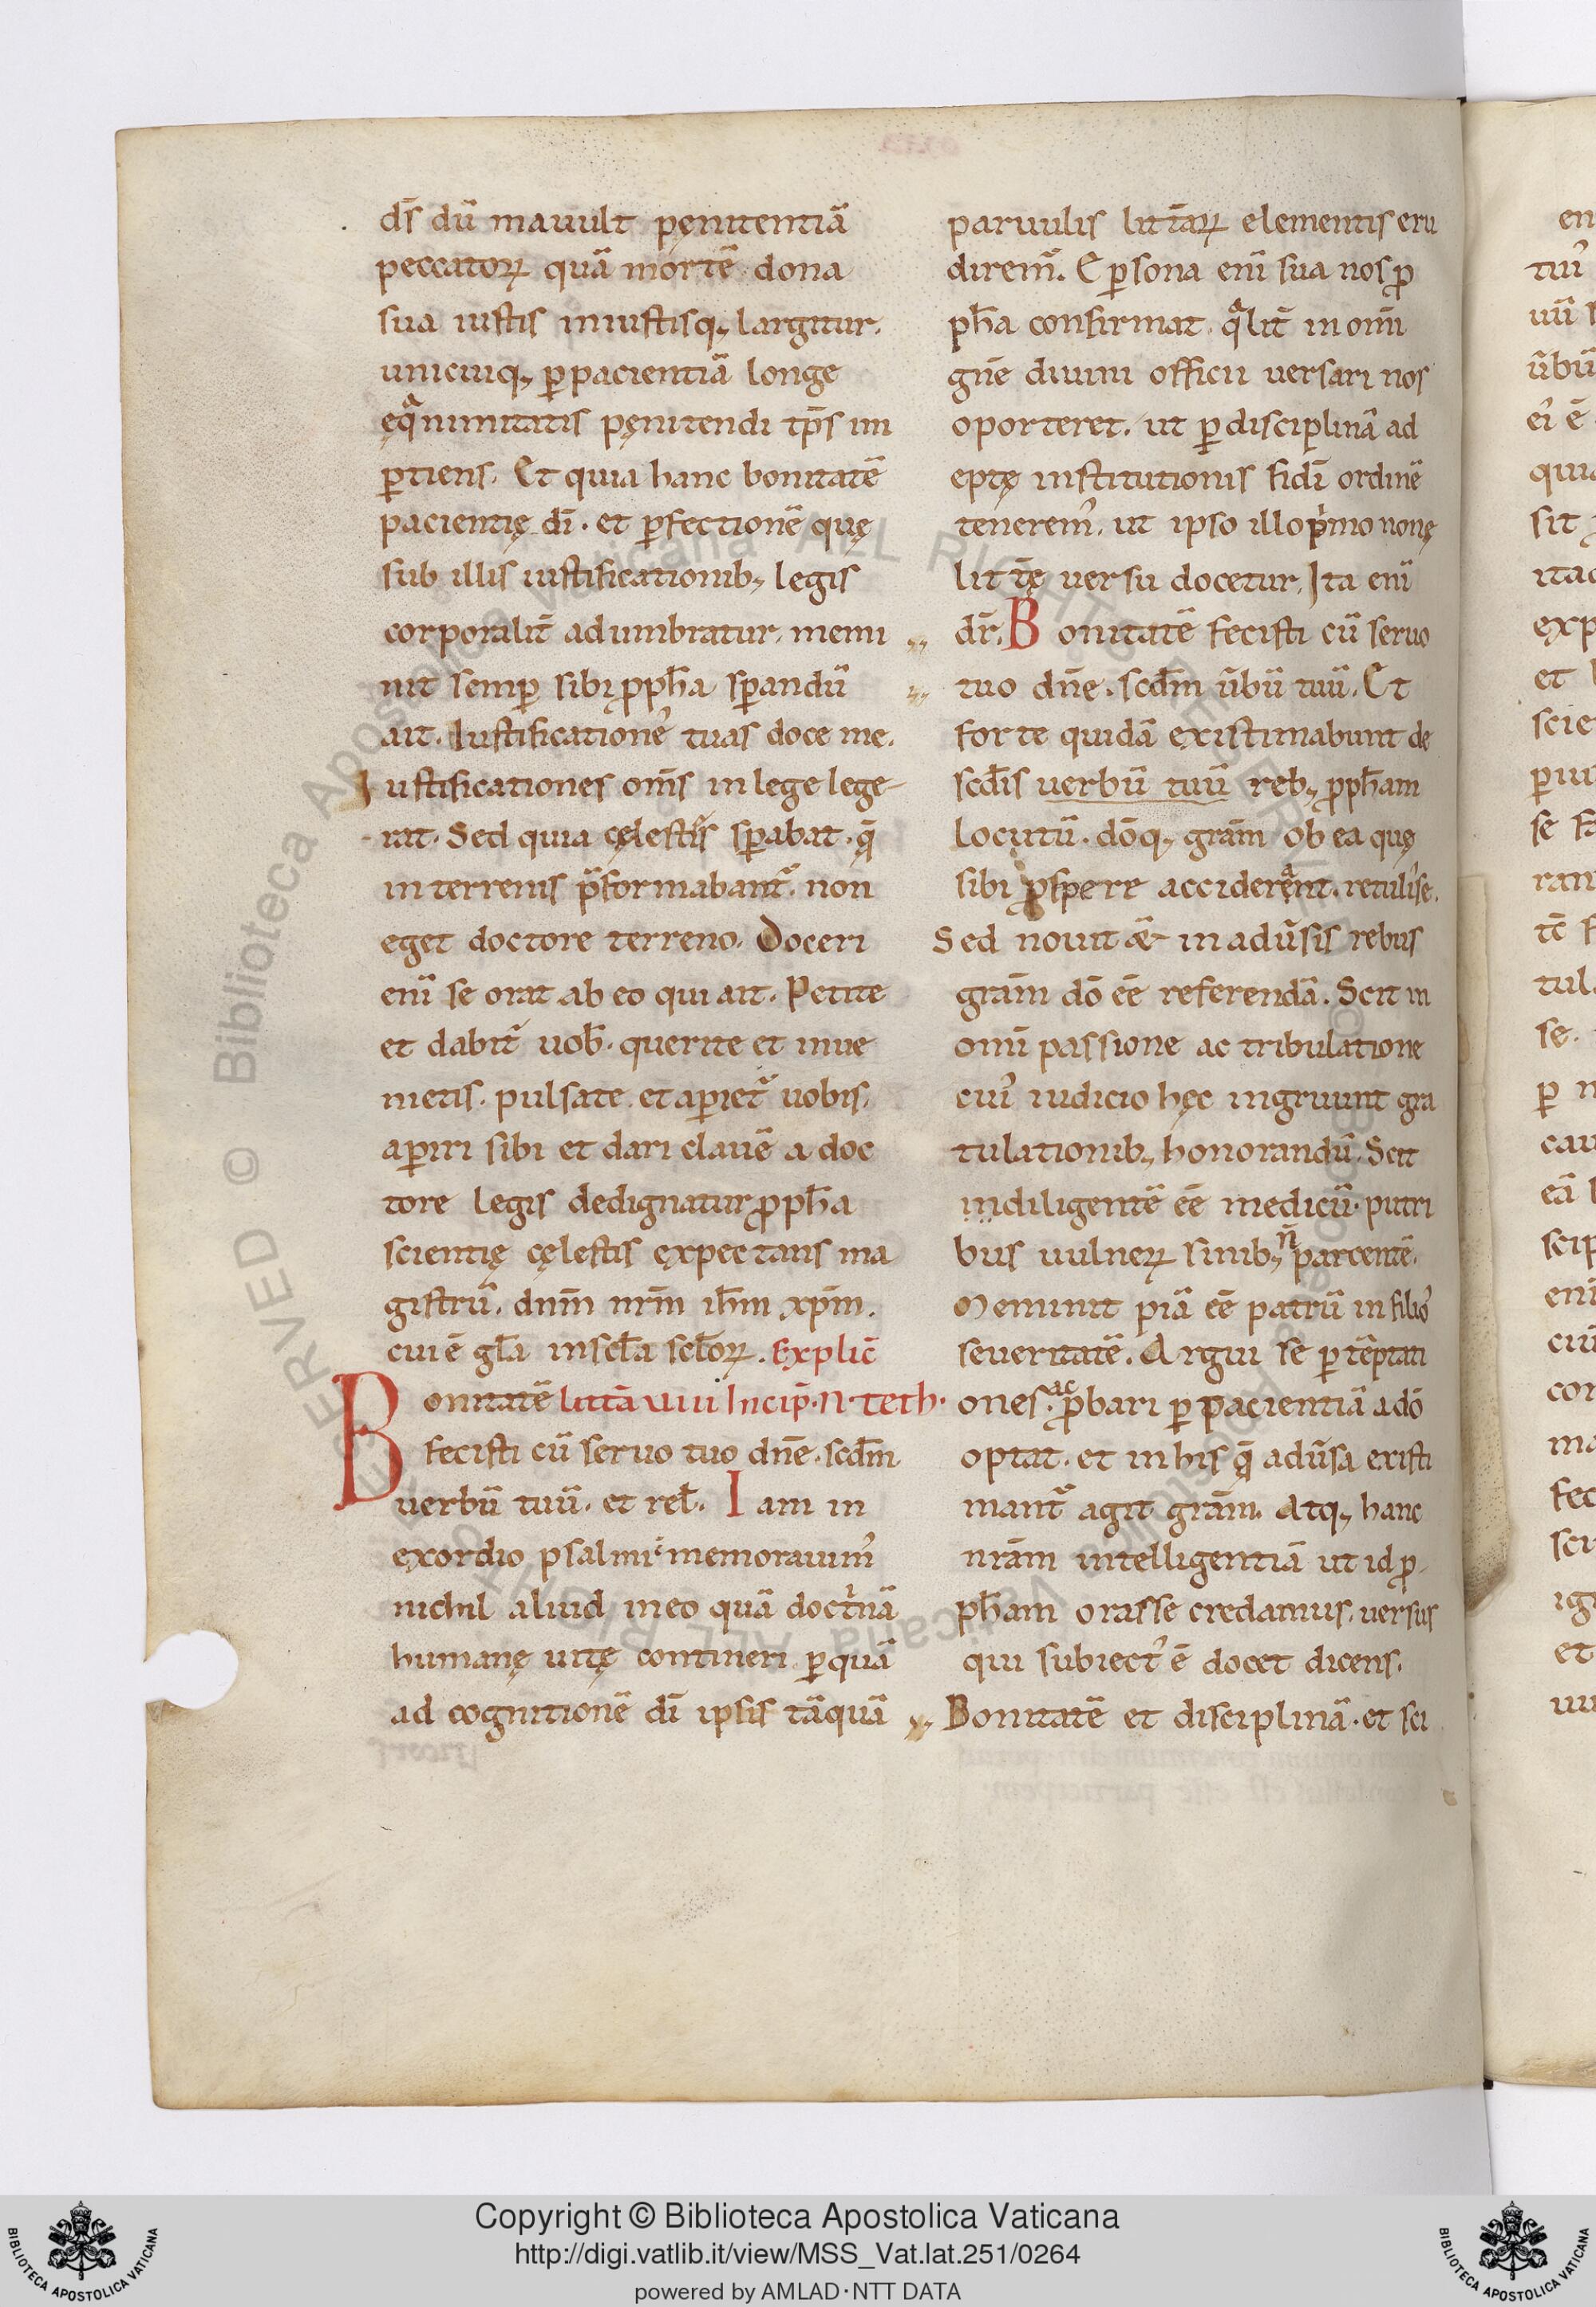 ds̄ dū mauult pęnitentiā
peccatoꝝ quā mortē dona
sua iustis iniustisq; largitur.
unicuiq; ꝑpacientiā longe
ęqͣnimitatis pęnitendi tp̄s im
ꝑtiens. Et quia hanc bonitatē
pacientię dī. et ꝑfectionē quę
sub illis iustificationib; legis
corporalit̄ adumbratur. memi
nit semꝑ sibi ꝓpħa sꝑandū
ait. Iustificatione᾽ tuas doce me.
Iustificationes om̄s in lege lege-
-rat. Sed quia cęlestis sꝑabat. q̄
in terrenis p̄formabant᷑. non
eget doctore terreno. Doceri
enī se orat ab eo qui ait. Petite
et dabit᷑ uob̄. querite et inue
nietis. pulsate et aꝑiet᷑ uobis.
aꝑiri sibi et dari clauē a doc
tore legis dedignatur ꝓpħa
scientię cęlestis expectans ma
gistrū. dnm̄ nrm̄ ihm̄ xp̄m.
cui ē gl̄a in scl̄a scl̄oꝝ. Explic̄
Bonitatē litt̄a uiiii Incip̄. N. teth.
fecisti cū seruo tuo dn̄e. scd̄m
uerbū tuū. et rel̄. Iam in
exordio psalmi memorauim᾽
nichil aliud in eo quā doctⁱnā
humanę uitę contineri ꝑ quā
ad cognitionē dī ipsis tāquā
paruulis litt̄aꝝ elementis eru
direm᷑. E ꝑsona enī sua nos ꝓ
pħa confirmat. qͣlit̄ in om̄i
gn̄e diuini officii uersari nos
oporteret. ut ꝑ disciplinā ad
eptę institutionis fidī ordinē
tenerem᾽. ut ipso illo pⁱmo nonę
litt̄ę uersu docetur. Ita enī
dr̄. Bonitatē fecisti cū seruo
tuo dn̄e. scd̄m ūbū tuū. Et
forte quidā existimabunt de
scd̄is uerbū tuū reb; ꝓpħam
locutū. dōq; grām ob ea quę
sibi ꝓspere acciderant. retulisse.
Sed nouit & in adūsis rebus
grām dō ēē referendā. Scit in
omī passione ac tribulatione
cui᾽ iudicio hęc ingruunt gra
tulationib; honorandū. Scit
indiligentē ēē medicū. putri
bus uulneꝝ sinib; n̄ parcentē.
Meminit piā ēē patrū in filio᾽
seueritatē. Argui se ꝑ tēptati
ones. ac ꝓbari ꝑ pacientiā a dō
optat. et in his q̄ adūsa existi
mant᷑ agit grām. Atq; hanc
nr̄am intelligentiā ut id ꝓ
pħam orasse credamus. uersus
qui subiect᾽ ē docet dicens.
Bonitatē et disciplinā. et sci
Copyright © Biblioteca Apostolica Vaticana
http://digi.vatlib.it/view/MSS_Vat.lat.251/0264
powered by AMLAD·NTT DATA